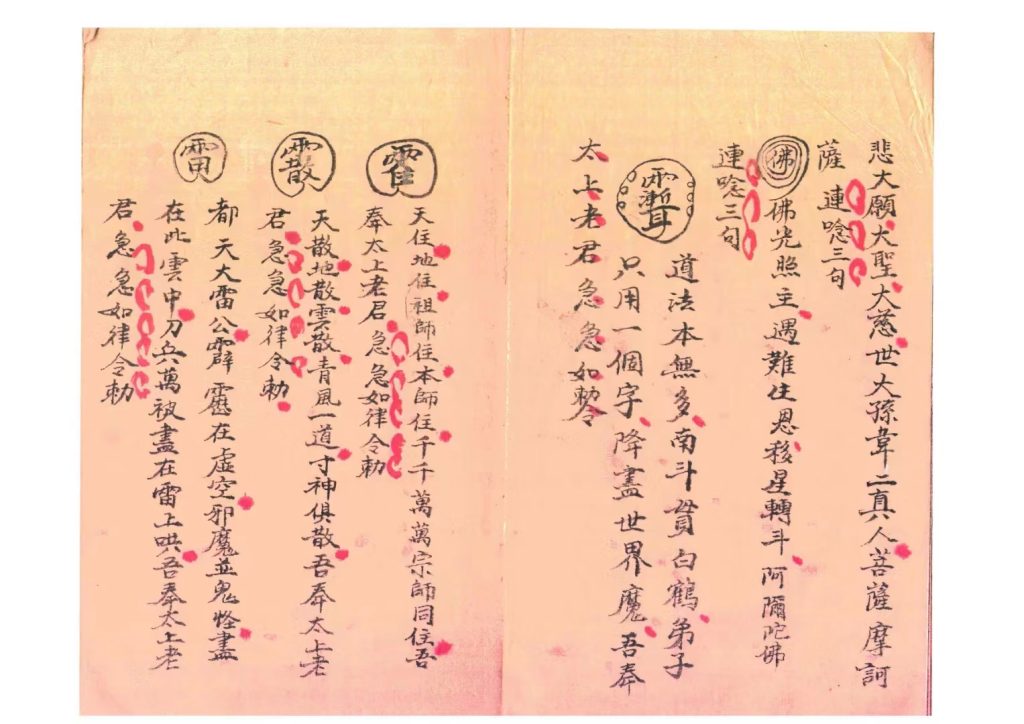 悲大願大聖大慈世大孫韋二真人菩薩摩訶
薩 連唸三句
佛 佛光照主遇難生恩移星轉斗 阿彌陀佛
連唸三句
道法本無多南斗貫白鶴弟子
只用一個字降盡世界魔吾奉
太上老君急急如勅令
天住地住祖師住本師住千千萬萬宗師同住吾
奉太上老君急急如律令勅
天散地散雲散青風一道寸神俱散吾奉太上老
君急急如律令勅
都天大雷公霹靂在虛空邪魔並鬼怪盡
在此雲中刀兵萬被盡在雷上哄吾奉太上老
君急急如律令勅